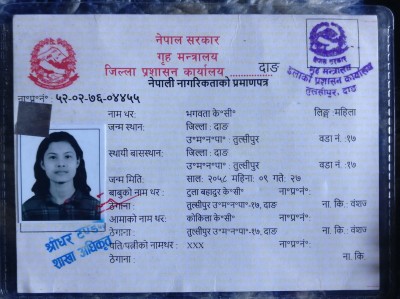 नेपाल सरकार
गृह मन्त्रालय
जिल्ला प्रशासन कार्यालय दाङ
नेपाली नागरिकताको प्रमाणपत्र
नेपाल सरकार
गृह मन्त्रालय
इलाका प्रशासन कार्यालय
तुल्सीपुर, दाङ
ना॰प्र॰नं॰: ५२-०२-७६-०४४५५
नाम थर: भगवता के॰सी॰ लिङ्ग: महिला
जन्म स्थान: जिल्ला: दाङ
उ॰म॰न॰पा॰ तुल्सिपुर वडा नं. :१७
स्थायी बासस्थान: जिल्ला: दाङ
उ॰म॰न॰पा॰: तुल्सिपुर वडा नं. :१७
जन्म मिति: साल: २०५८ महिना: ०९ गते: २७
बाबुको नाम थर: टुला बहादुर के॰सी॰ ना॰प्र॰नं॰:
ठेगाना: तुल्सीपुर उ॰म॰न॰पा॰-१७, दाङ ना. कि: वंशज
आमाको नाम थर: कोकिला के॰सी॰ ना॰प्र॰नं॰:
ठेगाना: तुल्सीपुर उ॰म॰न॰पा॰-१७, दाङ ना. कि. वंशज
पति/पत्नीको नाम थर: xxx ना॰प्र॰नं॰:
ठेगाना : ना. कि :
श्रीधर टण्डन
शाखा अधिकृत